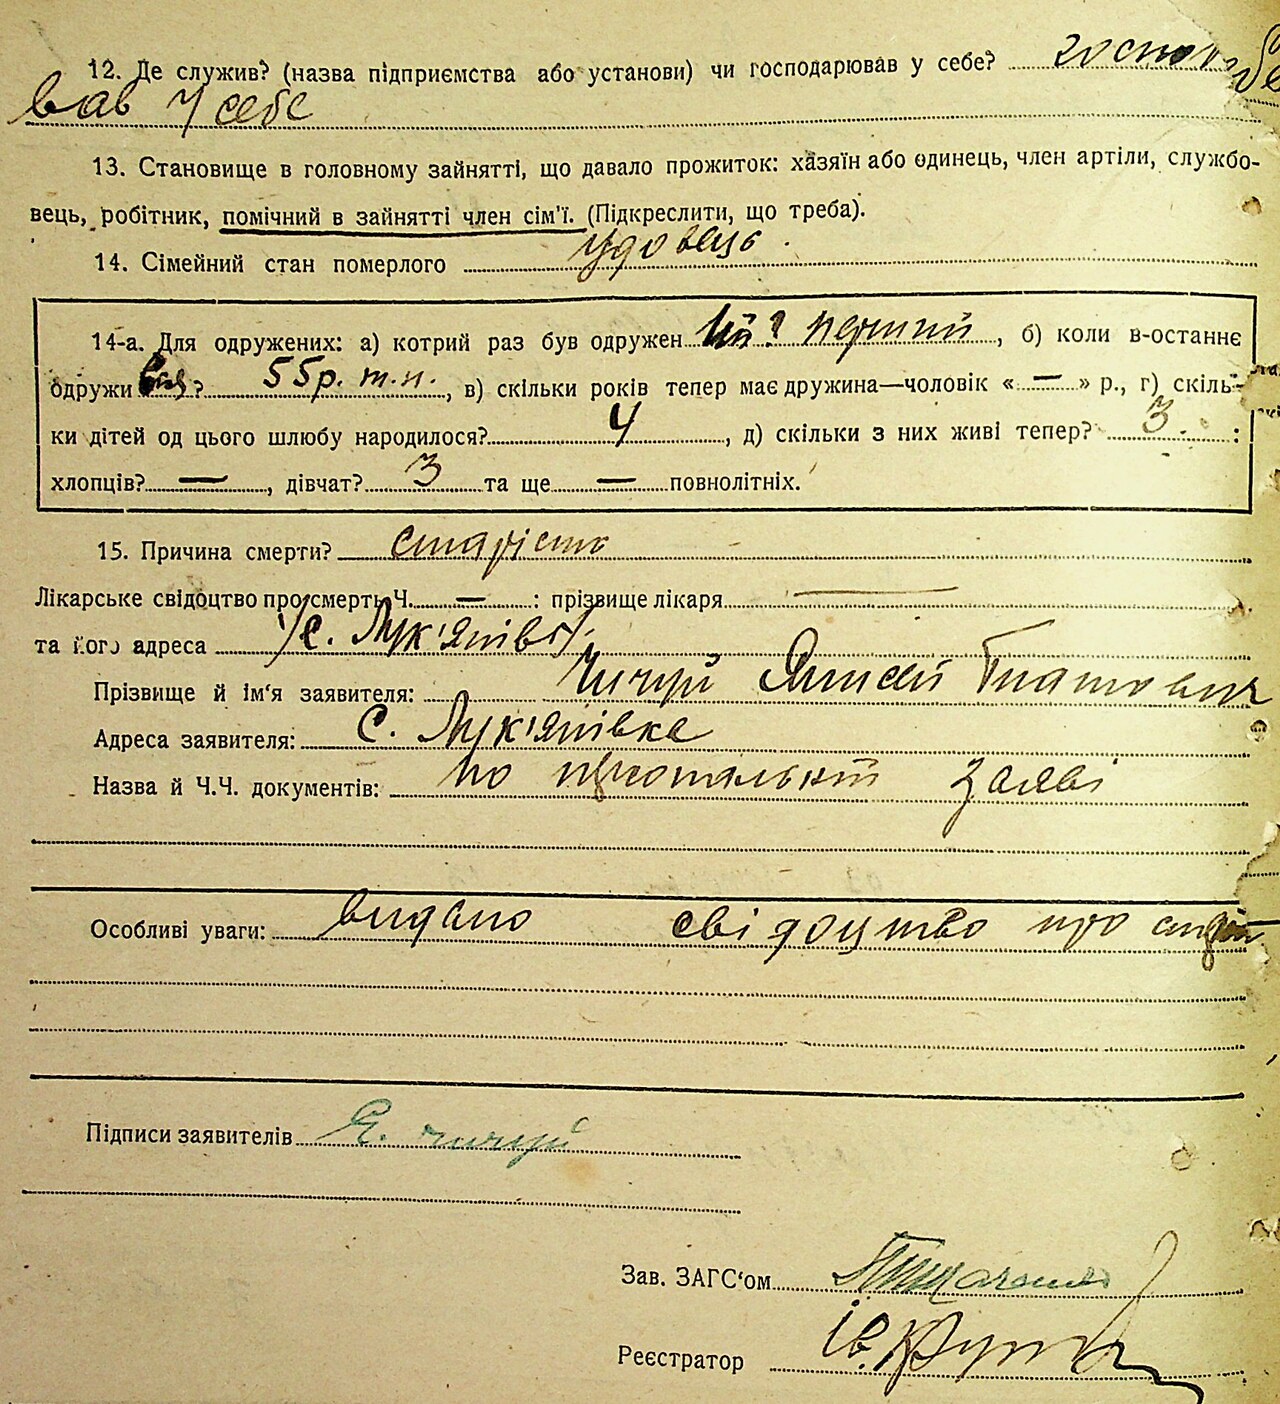 12. Де служив? (назва підприємства або установи) чи господарював у себе?
вав у себе
13. Становище в головному зайнятті, що давало прожиток: хазяїн або одинець, член артіли, службо-
вець, робітник, помічний в зайнятті член сім'ї. (Підкреслити, що треба).
14. Сімейний стан померлого удовець.
14-а. Для одружених: а) котрий раз був одружен ий? перший, б) коли в-останнє
одружи вся? 55 р. т. н., в) скільки років тепер має дружина—чоловік « — » р., г) скіль-
ки дітей од цього шлюбу народилося? 4, д) скільки з них живі тепер? 3 :
хлопців? —, дівчат? 3 та ще — повнолітніх.
15. Причина смерти? старість
Лікарське свідоцтво про смерть Ч. — : прізвище лікаря —
та його адреса с. Лук'янівка
Прізвище й ім'я заявителя: Чичуй Платович
Адреса заявителя: с. Лук'янівка
Назва й Ч.Ч. документів: по заяві
Особливі уваги: видано свідоцтво про
Підписи заявителів Я. Чичуй
Зав. ЗАГС'ом
Реєстратор